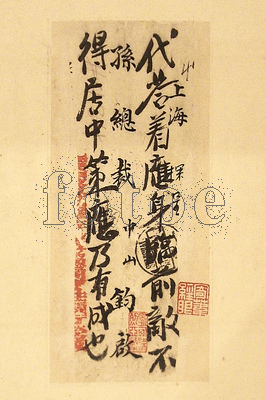 上海
代營着應身臨前敵不
孫總裁中山鈞啟
得居中策應乃有成也